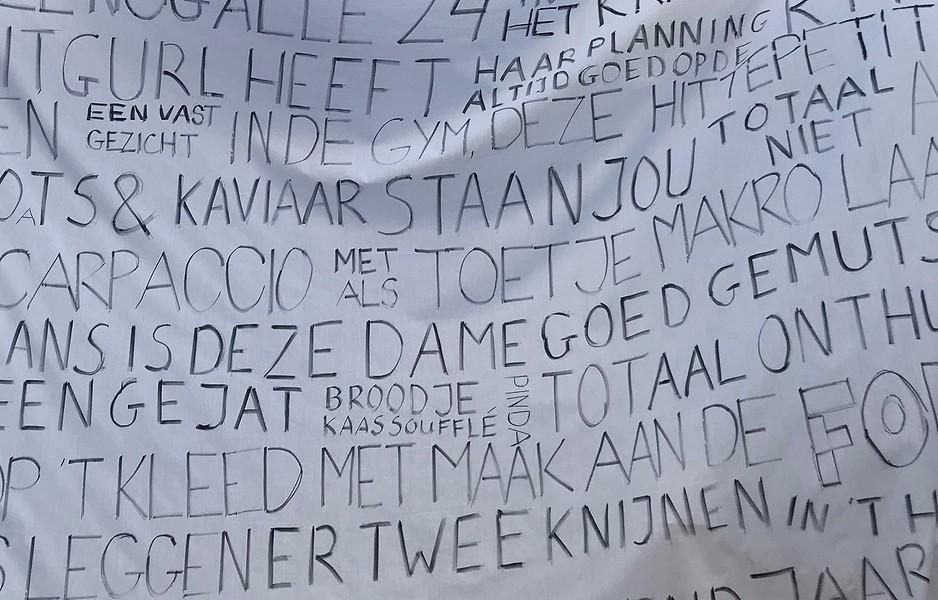 ALLE 24 HET
ITGURL HEEFT HAAR PLANNING ALTIJD GOED OP DE
EN EEN VAST GEZICHT IN DE GYM, DEZE HITTEPETIT
& KAVIAAR STAAN JOU TOTAAL NIET
CARPACCIO MET ALS TOETJE MAKRO LAA
ANS IS DEZE DAME GOED GEMUTS
EEN GEJAT BROODJE KAASSOUFFLÉ PINDA TOTAAL ONTHU
OP 'T KLEED MET MAAK AAN DE FO
S LEGGEN ER TWEE KNIJNEN IN 'T H
JAAR